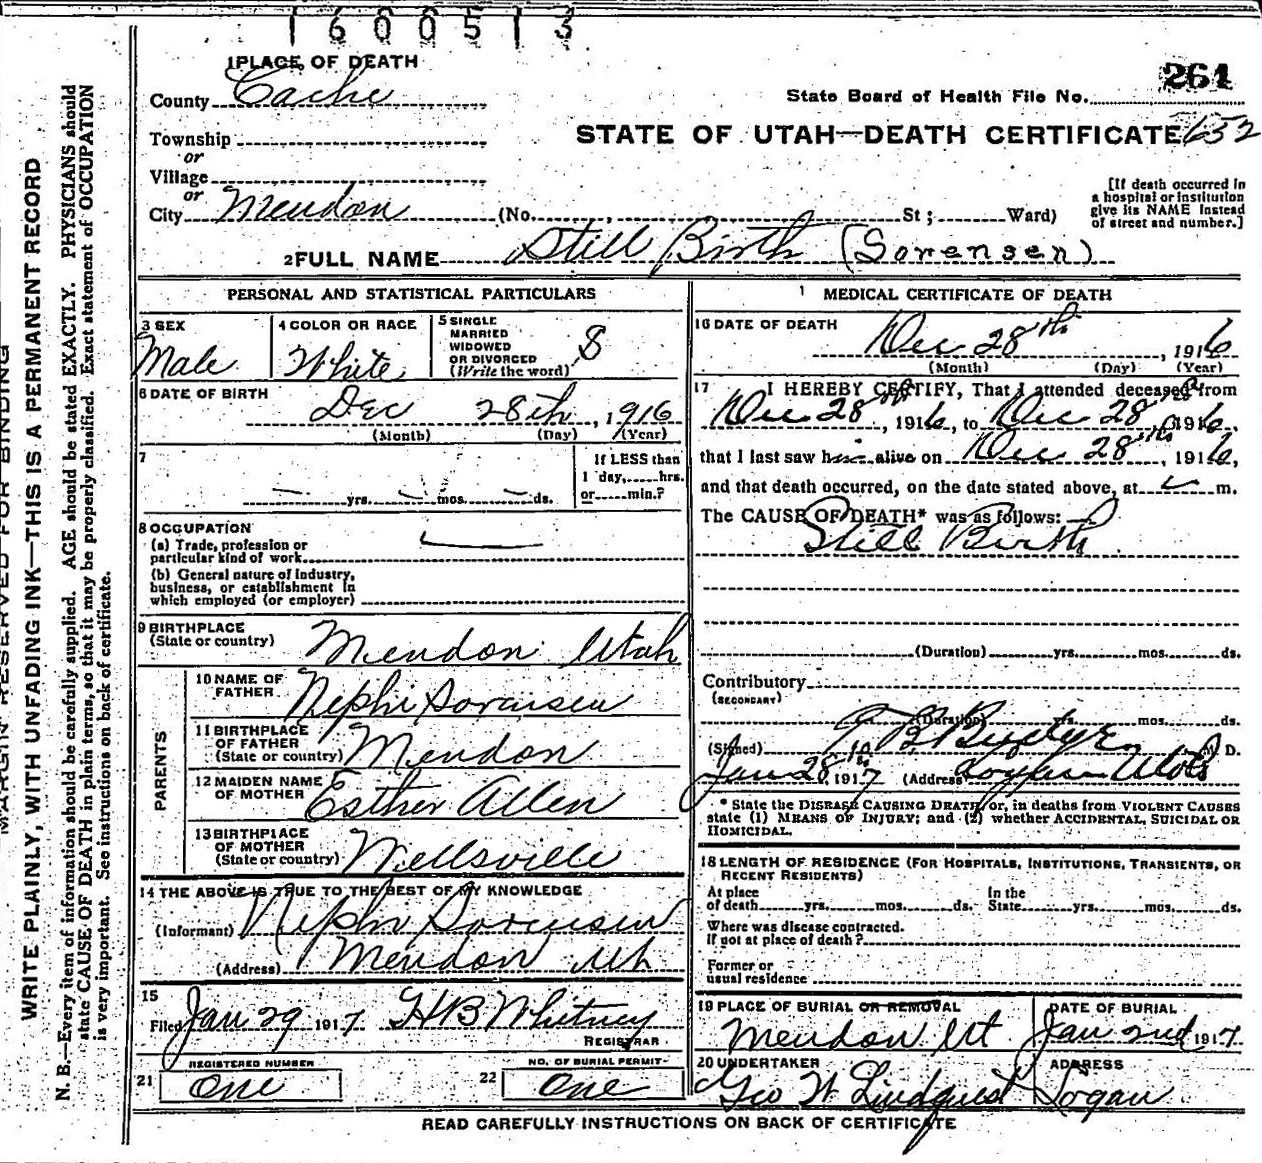 1600513
1 PLACE OF DEATH
County Cache
261
State Board of Health File No.
Township
or
STATE OF UTAH—DEATH CERTIFICATE 652
Village
or
City Mendon (No. , St ; Ward)
[If death occurred in
a hospital or institution
give its NAME instead
of street and number.]
2 FULL NAME Still Birth (Sorensen)
PERSONAL AND STATISTICAL PARTICULARS
3 SEX
Male
4 COLOR OR RACE
White
5 SINGLE
MARRIED
WIDOWED
OR DIVORCED
(Write the word) S
6 DATE OF BIRTH
Dec 28th, 1916
(Month) (Day) (Year)
7
yrs. mos. ds.
If LESS than
1 day, hrs.
or min.?
8 OCCUPATION
(a) Trade, profession or
particular kind of work
(b) General nature of industry,
business, or establishment in
which employed (or employer)
9 BIRTHPLACE
(State or country) Mendon Utah
PARENTS
10 NAME OF
FATHER Nephi Sorensen
11 BIRTHPLACE
OF FATHER
(State or country) Mendon
12 MAIDEN NAME
OF MOTHER Esther Allen
13 BIRTHPLACE
OF MOTHER
(State or country) Wellsville
14 THE ABOVE IS TRUE TO THE BEST OF MY KNOWLEDGE
(Informant) Nephi Sorensen
(Address) Mendon Ut
15
Filed Jan 29 1917 H B Whitney
REGISTRAR
REGISTERED NUMBER
21 One
NO. OF BURIAL PERMIT
22 One
1 MEDICAL CERTIFICATE OF DEATH
16 DATE OF DEATH
Dec 28th, 1916
(Month) (Day) (Year)
17 I HEREBY CERTIFY, That I attended deceased from
Dec 28th, 1916, to Dec 28th, 1916,
that I last saw him alive on Dec 28th, 1916,
and that death occurred, on the date stated above, at m.
The CAUSE OF DEATH* was as follows:
Still Birth
(Duration) yrs. mos. ds.
Contributory
(SECONDARY)
(Duration) yrs. mos. ds.
(Signed) M. D.
Jan 28th 1917 (Address)
* State the DISEASE CAUSING DEATH, or, in deaths from VIOLENT CAUSES
state (1) MEANS OF INJURY; and (2) whether ACCIDENTAL, SUICIDAL OR
HOMICIDAL.
18 LENGTH OF RESIDENCE (FOR HOSPITALS, INSTITUTIONS, TRANSIENTS, OR
RECENT RESIDENTS)
At place
of death yrs. mos. ds.
In the
State yrs. mos. ds.
Where was disease contracted.
If not at place of death?
Former or
usual residence
19 PLACE OF BURIAL OR REMOVAL
Mendon Ut
DATE OF BURIAL
Jan 2nd 1917
20 UNDERTAKER
Geo W Lindquist
ADDRESS
Logan
READ CAREFULLY INSTRUCTIONS ON BACK OF CERTIFICATE
MARGIN RESERVED FOR BINDING
WRITE PLAINLY, WITH UNFADING INK—THIS IS A PERMANENT RECORD
N. B.—Every item of information should be carefully supplied. AGE should be stated EXACTLY. PHYSICIANS should
state CAUSE OF DEATH in plain terms, so that it may be properly classified. Exact statement of OCCUPATION
is very important. See instructions on back of certificate.